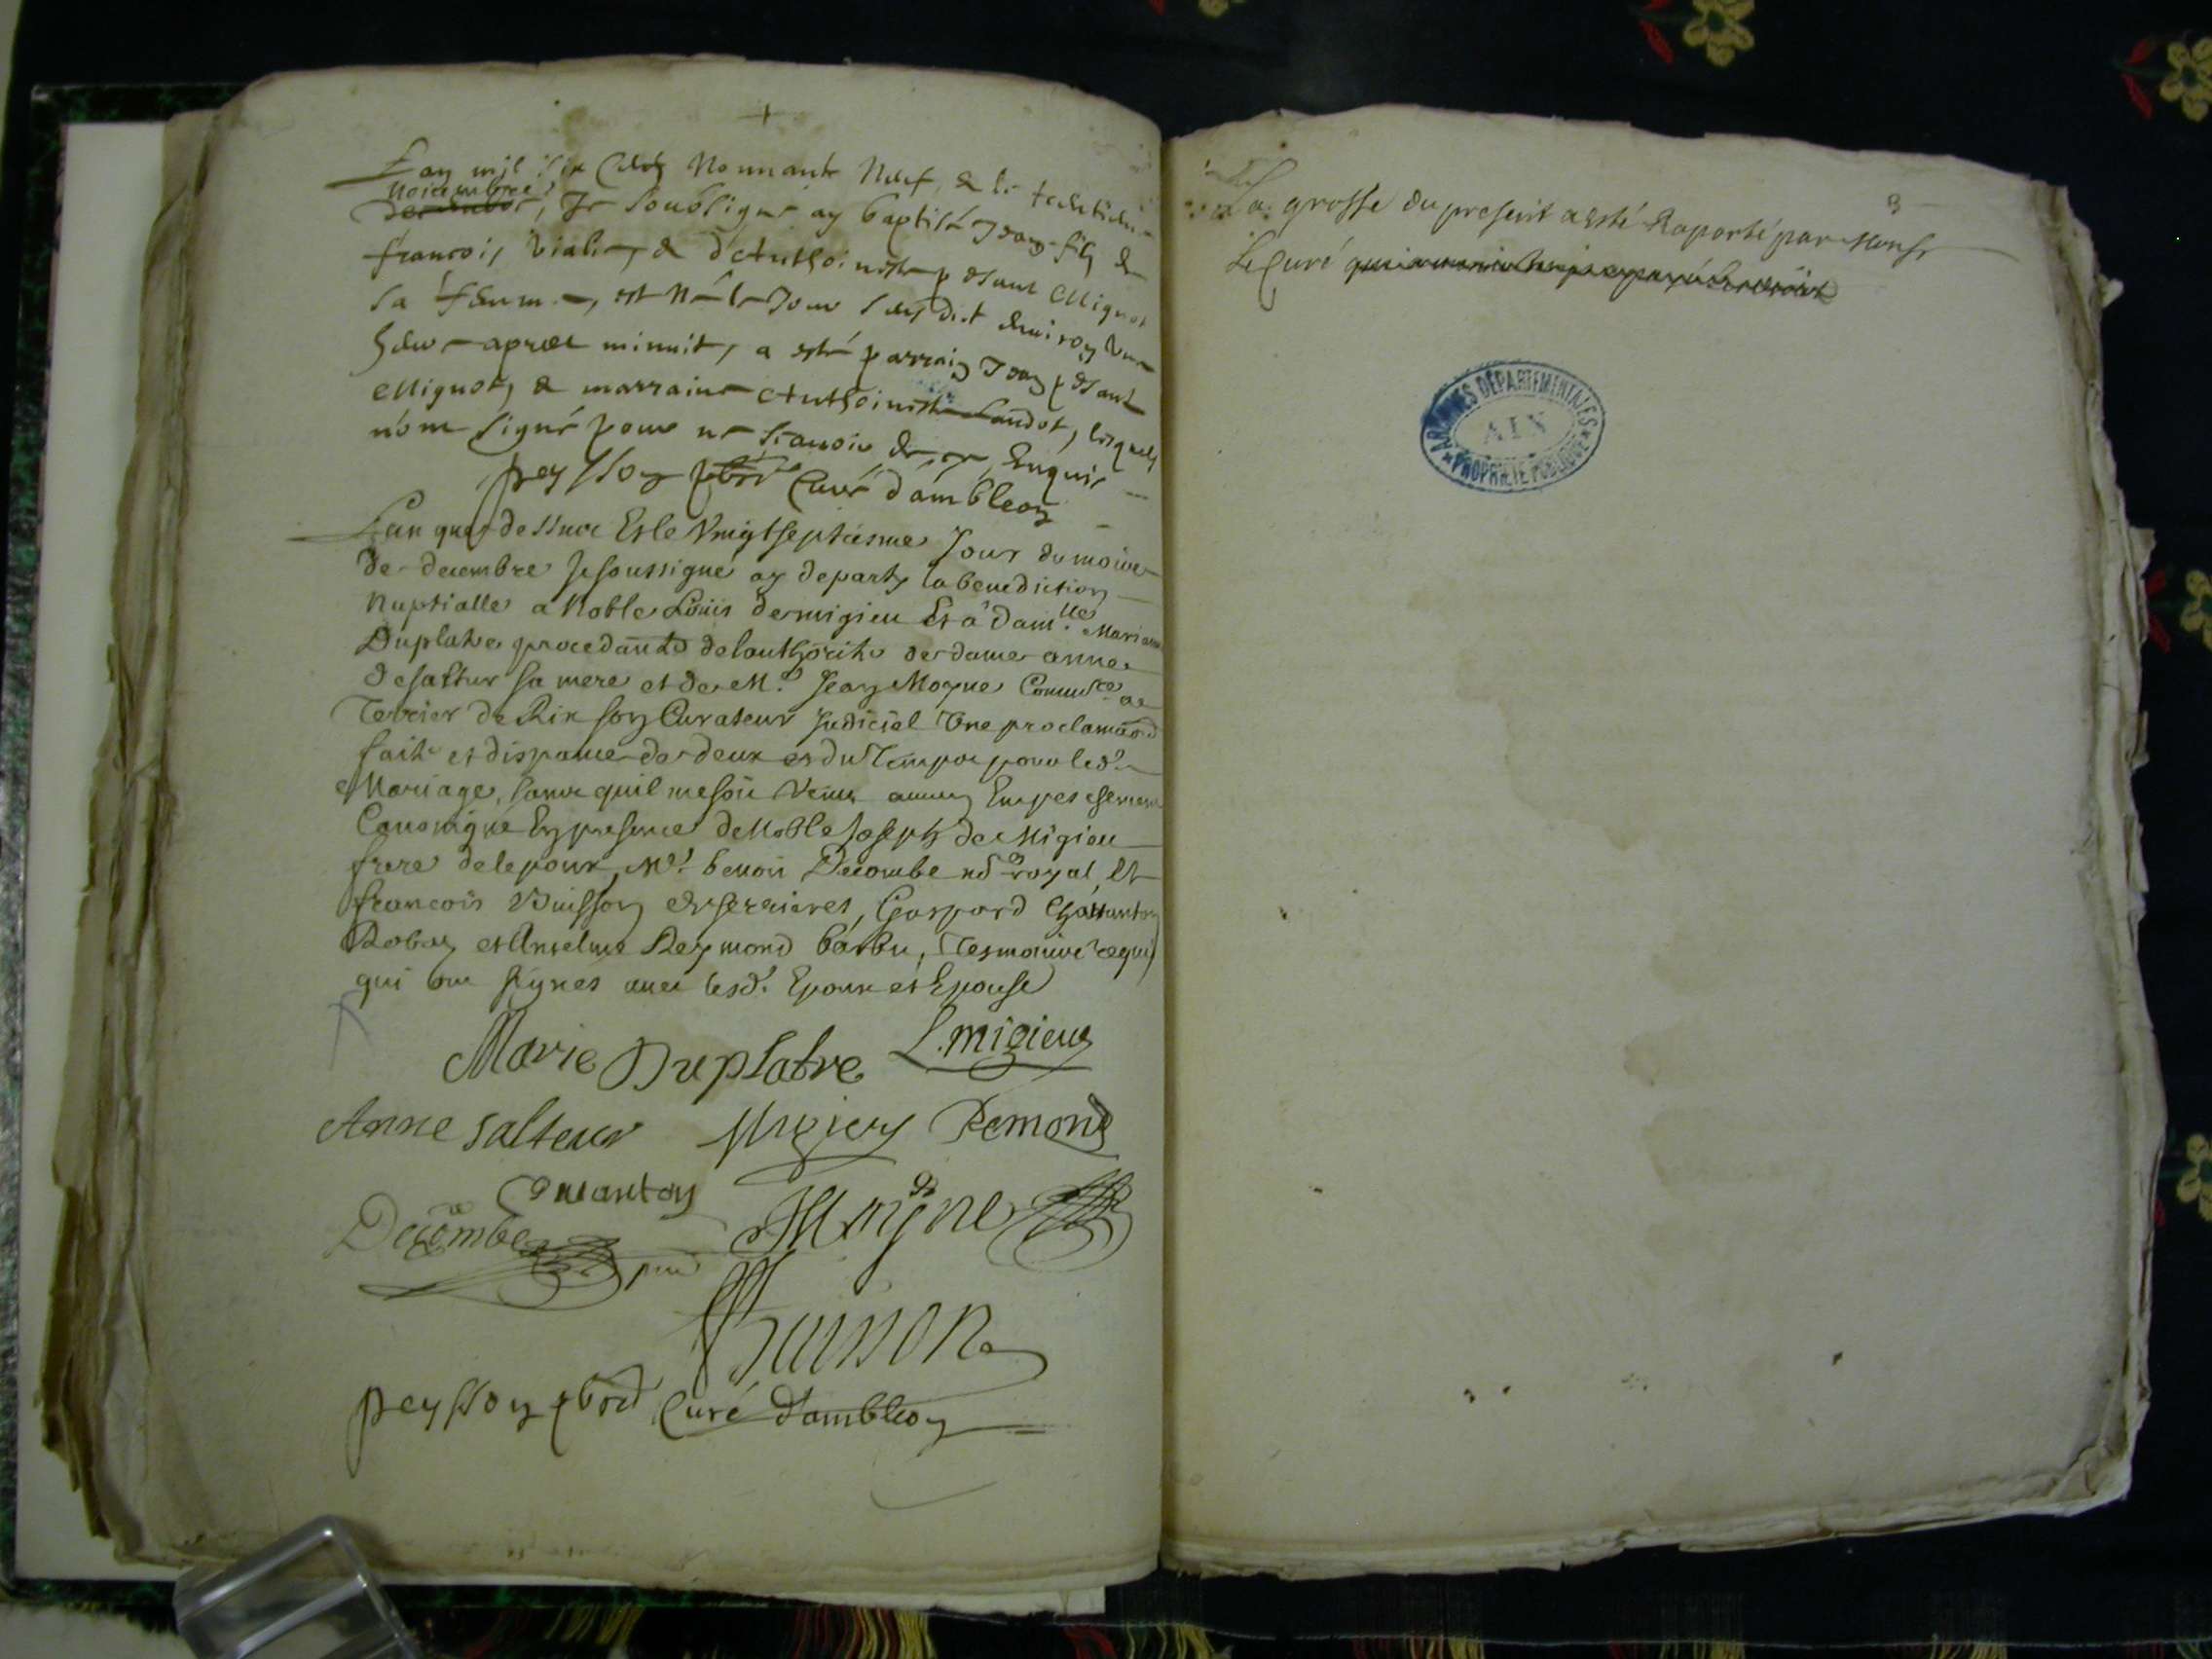 Lan mil six Cents Nonnante Neuf, & le
Nouembre
decembre, Je soubsigné ay baptisé Jean fils de
francois Vialier & d'Anthoinette pesant Mignot
sa femme, est né le Jour susdit enuiron Vne
heure apres minuit, a esté parrain Jean pesant
Mignot, & marraine Anthoinette Landot, lesquels
nont signé pour ne scauoir de ce Enquis
peysson pbre Curé d'ambleon
Lan que dessus Et le Vingtseptiesme Jour du mois
de decembre Je soussigne ay departy la benediction
Nuptialle a Noble Loüis demigieu Et a Dam.lle Mariane
Duplatre procedante de lauthorité de dame anne
de salteur sa mere et de M.e Jean Moyne Commre a
Terrier de Rix son Curateur Judiciel Vne proclamaon
faite et dispance de deux et du Temps pour led.
Mariage, sans quil me soit Venu aucun Empeschement
Canonique En presence de Noble Joseph de Migieu
frere de lepoux, Me. benoit Decombe nore royal, Et
francois Buisson de serrieres, Gaspard
et Anselme Reymond barbu, Tesmoins requis
qui ont signes auec lesd. Epoux et Epouse
Marie Duplatre L. migieu
Anne salteur Migieu Remond
Decombe
Moyne
Buisson
peysson pbre Curé d'ambleon
3
La grosse du present a esté Raporté par Monsr
Le Curé
ARCHIVES DÉPARTEMENTALES
AIN
PROPRIÉTÉ PUBLIQUE